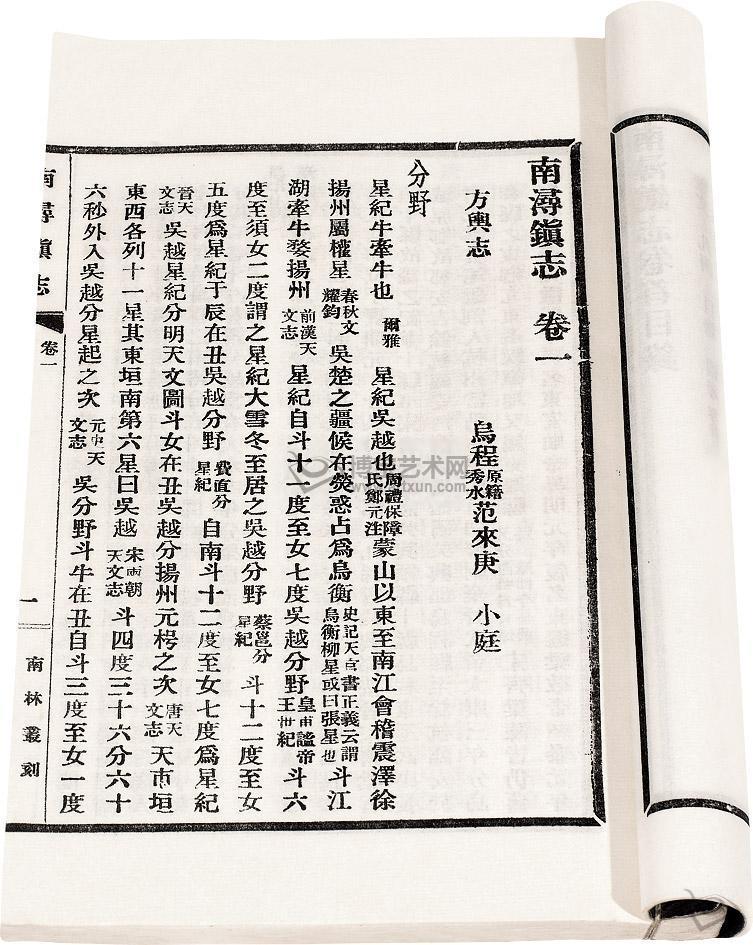 南潯鎭志 卷一
方輿志 烏程原籍秀水范來庚 小庭
分野
星紀牛牽牛也爾雅 星紀吳越也周禮保障氏鄭元注蒙山以東至南江會稽震澤徐
揚州屬權星春秋文耀鈎 吳楚之疆候在熒惑占爲鳥衡史記天官書正義云謂鳥衡柳星或曰張星也斗江
湖牽牛婺揚州前漢天文志 星紀自斗十一度至女七度吳越分野皇甫謐帝王世紀 斗六
度至須女二度謂之星紀大雪冬至居之吳越分野蔡邕分星紀 斗十二度至女
五度爲星紀于辰在丑吳越分野費直分星紀 自南斗十二度至女七度爲星紀
晉天文志 吳越星紀分明天文圖斗女在丑吳越分揚州元枵之次唐天文志 天市垣
東西各列十一星其東垣南第六星曰吳越宋兩朝天文志 斗四度三十六分六十
六秒外入吳越分星起之次元史天文志 吳分野斗牛在丑自斗三度至女一度
南潯鎭志 卷一 一 南林叢刻
博寶艺术网